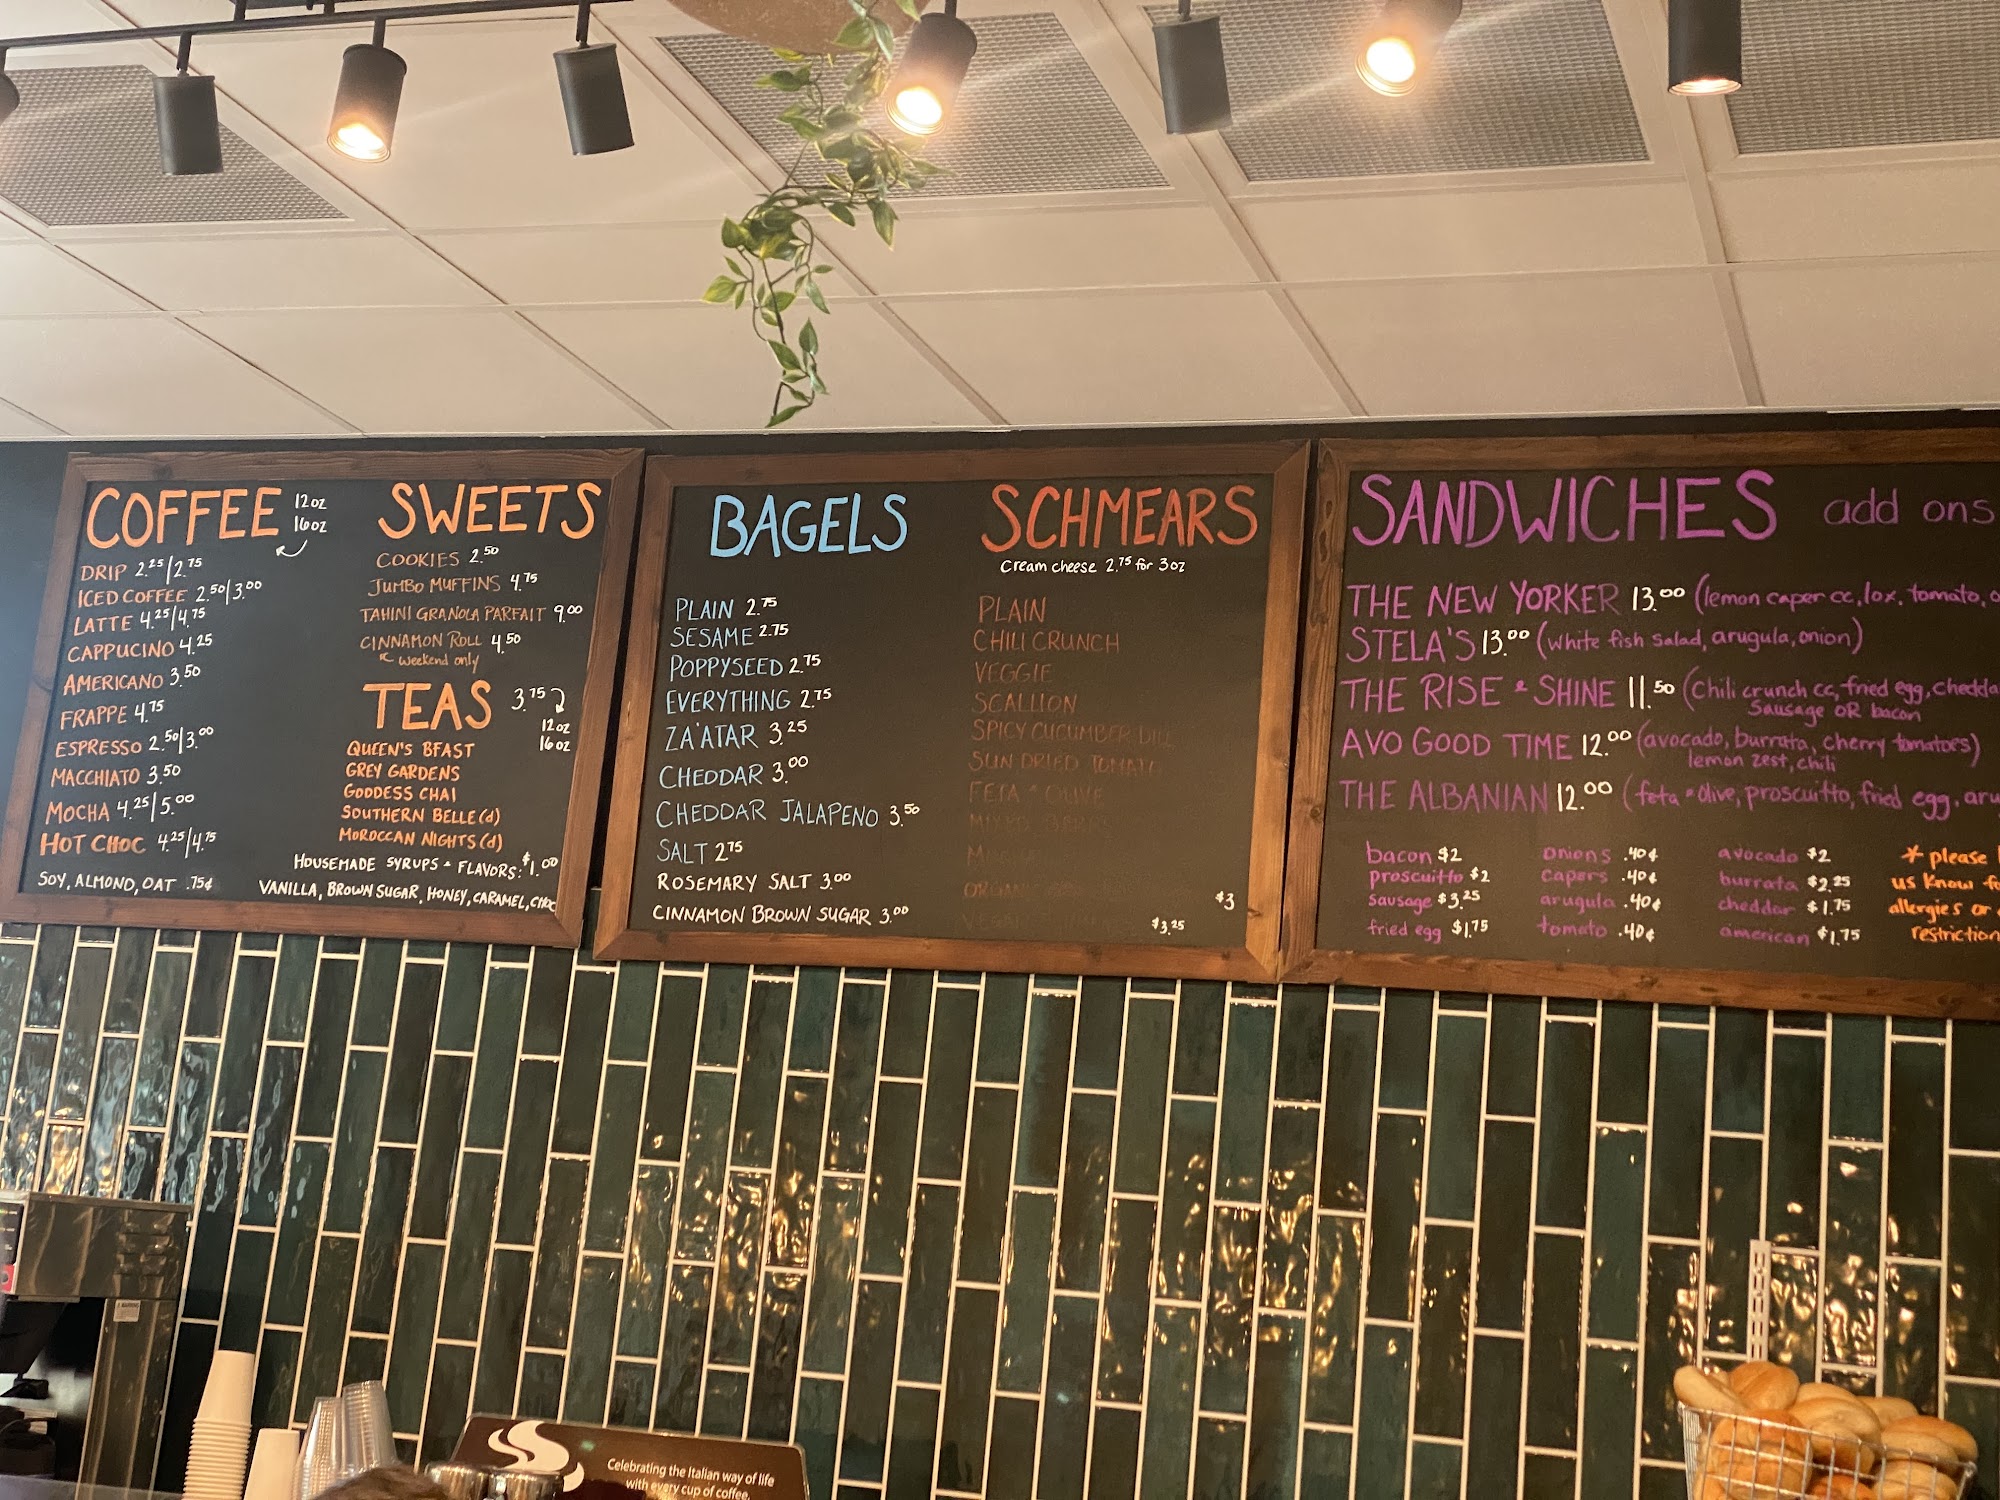 COFFEE 12oz
16oz
DRIP 2.25/2.75
ICED COFFEE 2.50/3.00
LATTE 4.25/4.75
CAPPUCINO 4.25
AMERICANO 3.50
FRAPPE 4.75
ESPRESSO 2.50/3.00
MACCHIATO 3.50
MOCHA 4.25/5.00
HOT CHOC 4.25/4.75
SOY, ALMOND, OAT .75¢
SWEETS
COOKIES 2.50
JUMBO MUFFINS 4.75
TAHINI GRANOLA PARFAIT 9.00
CINNAMON ROLL 4.50
weekend only
TEAS 3.75
12oz
16oz
QUEEN'S BFAST
GREY GARDENS
GODDESS CHAI
SOUTHERN BELLE (d)
MOROCCAN NIGHTS (d)
HOUSEMADE SYRUPS + FLAVORS: $1.00
VANILLA, BROWN SUGAR, HONEY, CARAMEL, CHOC
BAGELS
PLAIN 2.75
SESAME 2.75
POPPYSEED 2.75
EVERYTHING 2.75
ZA'ATAR 3.25
CHEDDAR 3.00
CHEDDAR JALAPENO 3.50
SALT 2.75
ROSEMARY SALT 3.00
CINNAMON BROWN SUGAR 3.00
SCHMEARS
Cream cheese 2.75 for 3oz
PLAIN
CHILI CRUNCH
VEGGIE
SCALLION
SPICY CUCUMBER DILL
SUN DRIED TOMATO
FETA + OLIVE
$3
$3.25
SANDWICHES add ons
THE NEW YORKER 13.00 (lemon caper cc, lox, tomato,
STELA'S 13.00 (white fish salad, arugula, onion)
THE RISE + SHINE 11.50 (chili crunch cc, fried egg, chedda
Sausage OR bacon
AVO GOOD TIME 12.00 (avocado, burrata, cherry tomatoes)
lemon zest, chili
THE ALBANIAN 12.00 (feta + olive, prosciutto, fried egg, aru
bacon $2
prosciutto $2
sausage $3.25
fried egg $1.75
onions .40¢
capers .40¢
arugula .40¢
tomato .40¢
avocado $2
burrata $2.25
cheddar $1.75
american $1.75
* please
us know fo
allergies or
restriction
Celebrating the Italian way of life
with every cup of coffee.